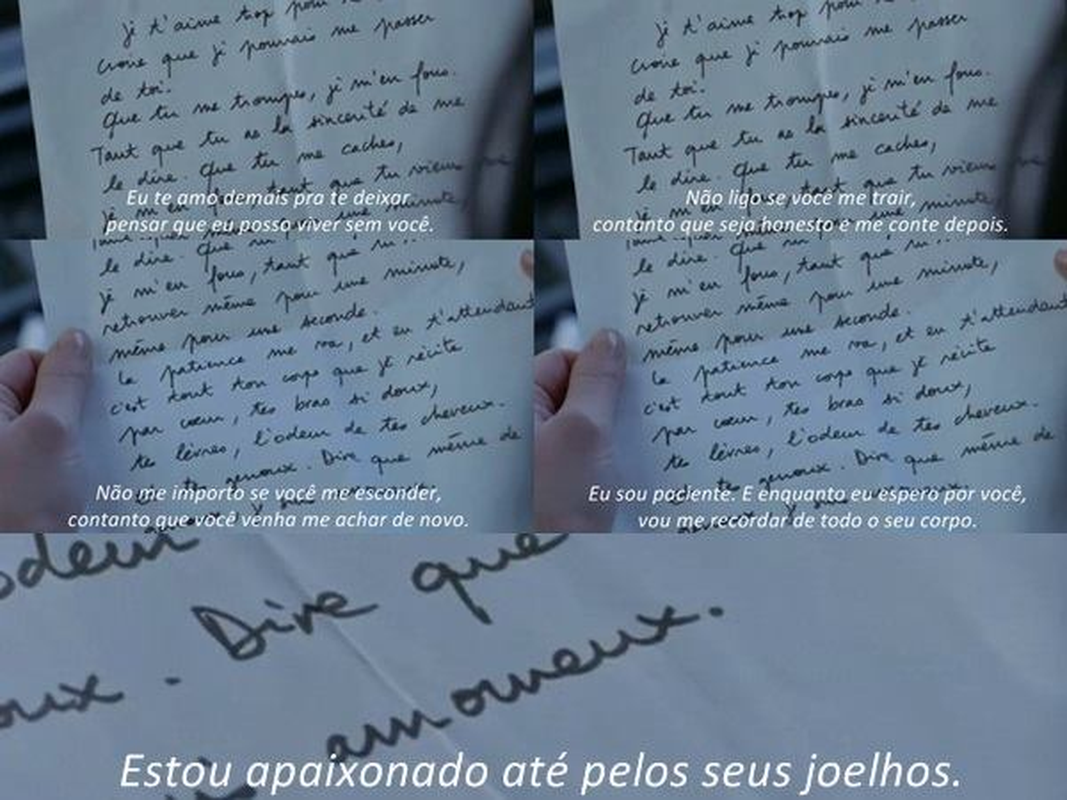 je t'aime trop pour
croire que je pourrais me passer
de toi.
Que tu me trompes, je m'en fous.
Tant que tu as la sincérité de me
le dire. Que tu me caches,
je m'en fous, tant que tu viens me
Eu te amo demais pra te deixar
pensar que eu posso viver sem você.
je t'aime trop pour
croire que je pourrais me passer
de toi.
Que tu me trompes, je m'en fous.
Tant que tu as la sincérité de me
le dire. Que tu me caches,
je m'en fous, tant que tu viens me
minute,
Não ligo se você me trair,
contanto que seja honesto e me conte depois.
le dire. Que tu
je m'en fous, tant que
retrouver même pour une minute,
même pour une seconde.
La patience me va, et en t'attendant
c'est tout ton corps que je récite
par cœur, tes bras si doux,
tes lèvres, l'odeur de tes cheveux.
genoux. Dire que même de
Não me importo se você me esconder,
contanto que você venha me achar de novo.
le dire. Que
je m'en fous, tant que
retrouver même pour une minute,
même pour une seconde.
La patience me va, et en t'attendant
c'est tout ton corps que je récite
par cœur, tes bras si doux,
tes lèvres, l'odeur de tes cheveux.
genoux. Dire que même de
Eu sou paciente. E enquanto eu espero por você,
vou me recordar de todo o seu corpo.
odeur
oux. Dire que
amoureux.
Estou apaixonado até pelos seus joelhos.